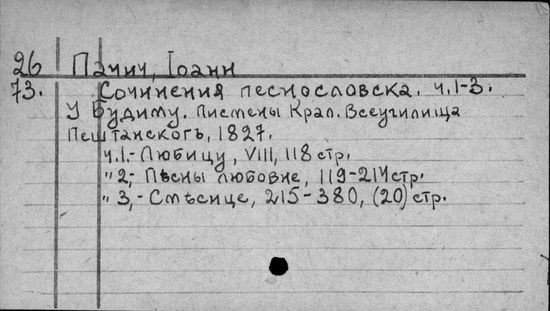 26 Пачић, Іоанн
73. Сочинения песнословска. ч.1-3.
У Будиму. Писмены Крал. Всеучилища
Пештанскогъ, 1827.
ч.1.- Любицу, VIII, 118 стр.
" 2,- Пѣсны любовне, 119-214 стр.
" 3,- Смѣсице, 215-380, (20) стр.